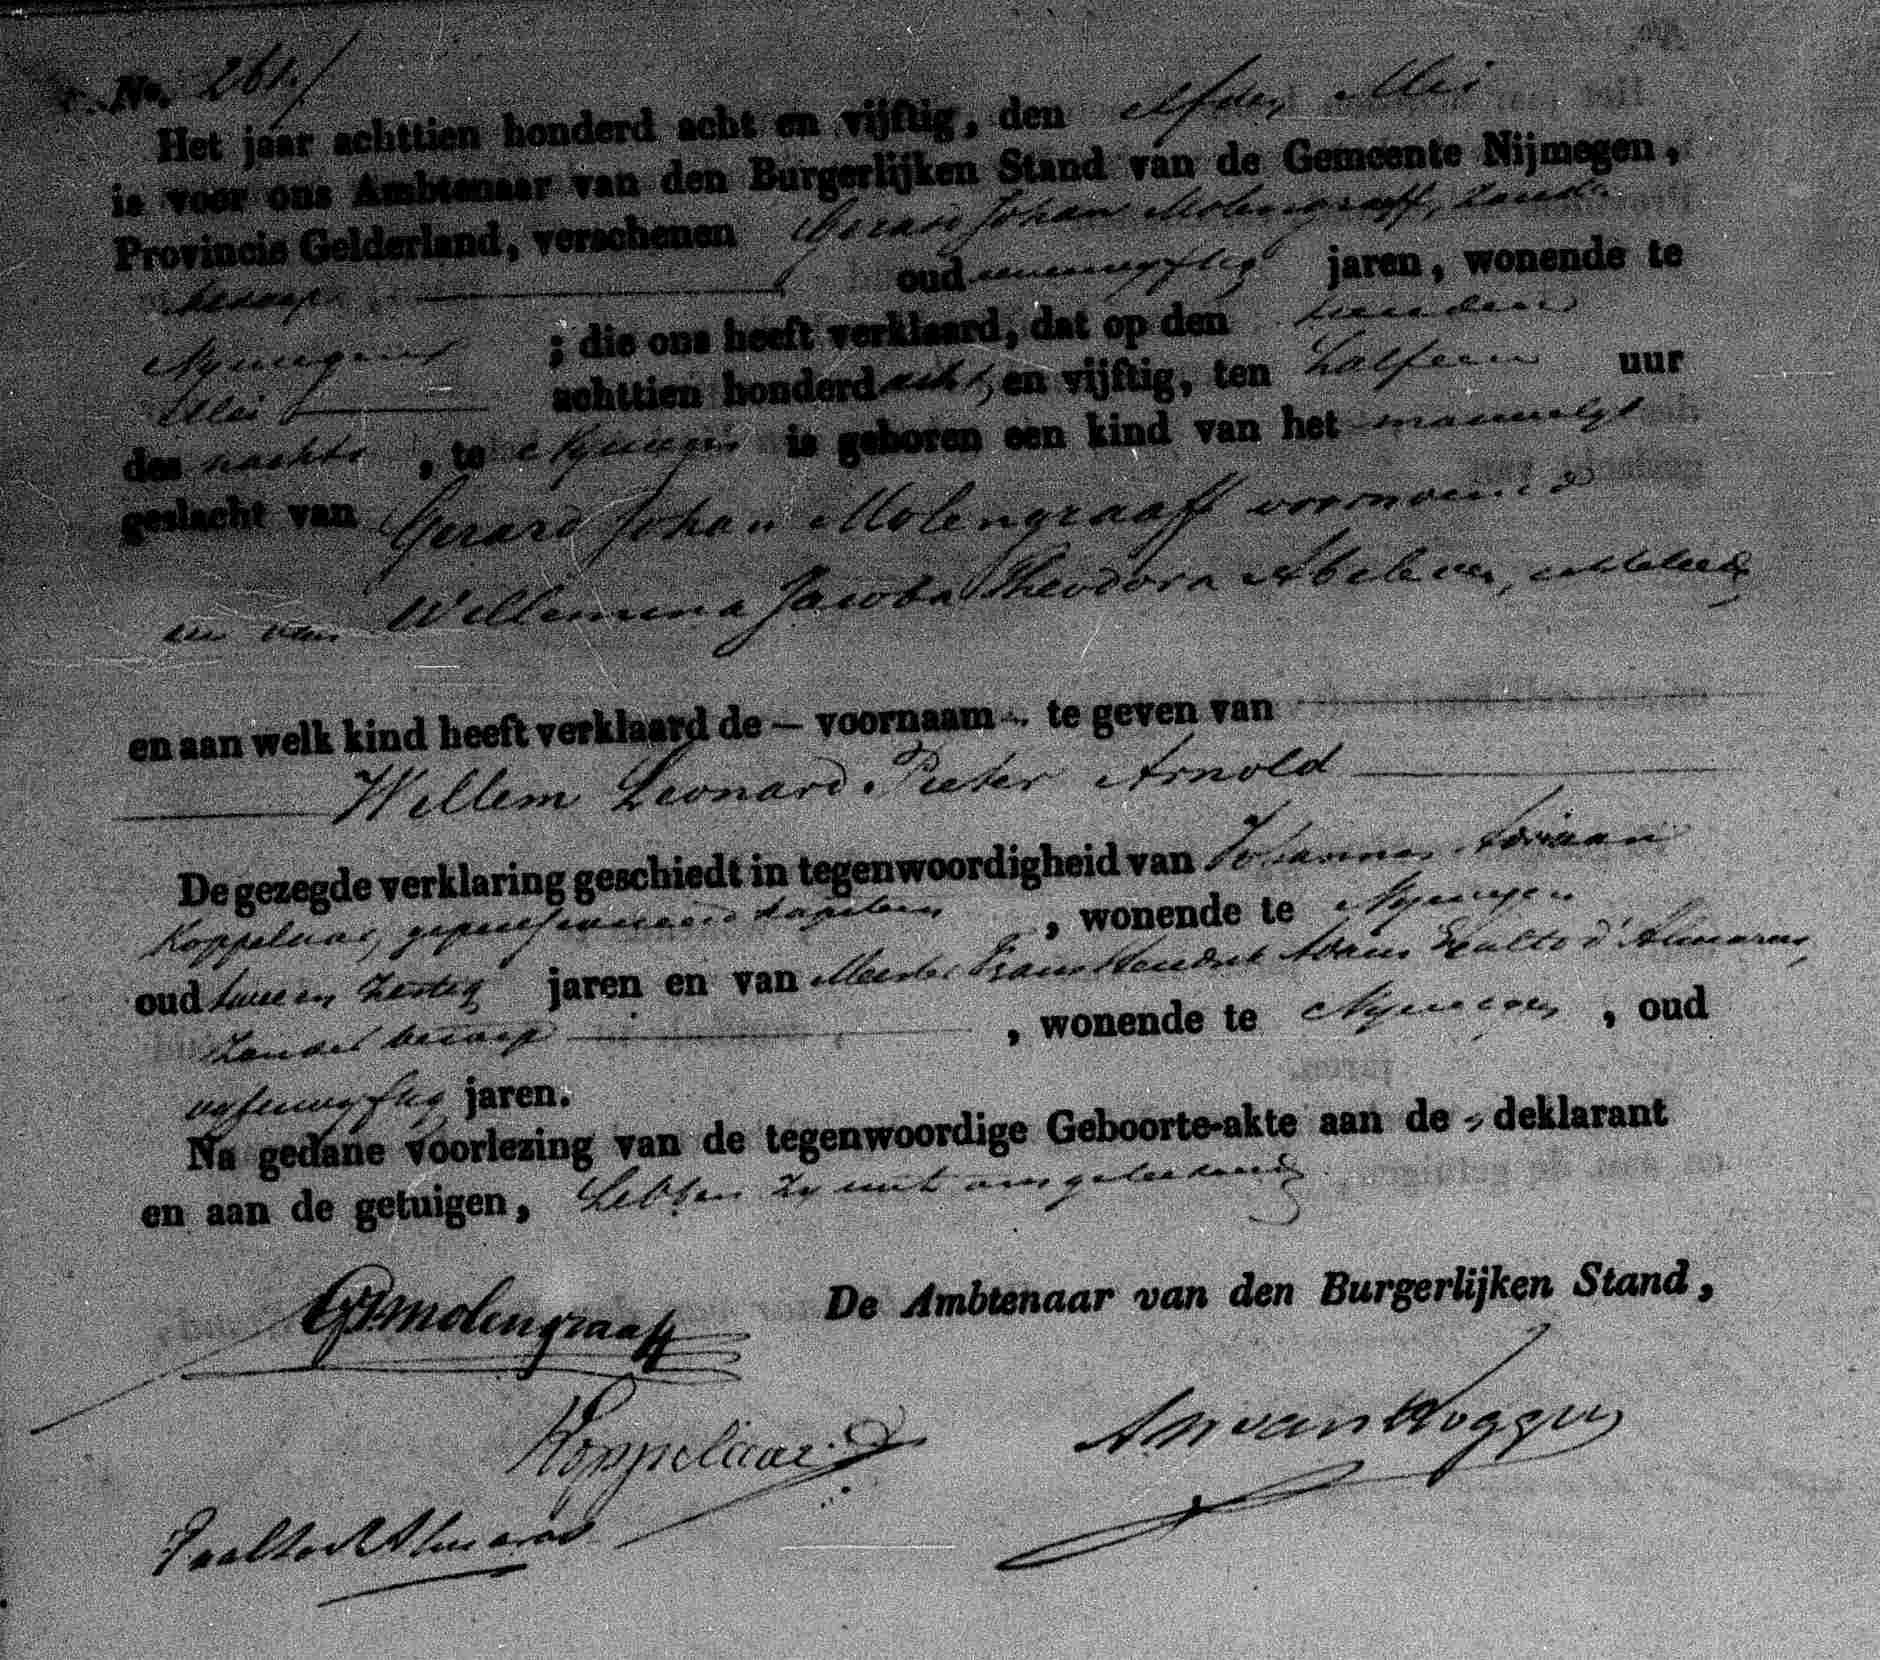 No. 261.
Het jaar achttien honderd acht en vijftig, den elfden Mei
is voor ons Ambtenaar van den Burgerlijken Stand van de Gemeente Nijmegen,
Provincie Gelderland, verschenen Gerard Johan Molengraaff, zonder
beroep, oud jaren, wonende te
Nijmegen ; die ons heeft verklaard, dat op den tienden
Mei achttien honderd acht en vijftig, ten half een uur
des nachts, te Nijmegen is geboren een kind van het mannelijk
geslacht van Gerard Johan Molengraaff voornoemd
en van Willemina Jacoba Theodora Abeleven, echtelieden
en aan welk kind heeft verklaard de – voornaam – te geven van
Willem Leonard Pieter Arnold
De gezegde verklaring geschiedt in tegenwoordigheid van Johannes Adriaan
Koppelaar, gepensioneerd kapitein, wonende te Nymegen
oud twee en zestig jaren en van Meester Frans Hendrik Adam d'Almaras,
zonder beroep, wonende te Nymegen, oud
vyfenvyftig jaren.
Na gedane voorlezing van de tegenwoordige Geboorte-akte aan de – deklarant
en aan de getuigen, hebben zy met ons geteekend
GJMolengraaff De Ambtenaar van den Burgerlijken Stand,
Koppelaar